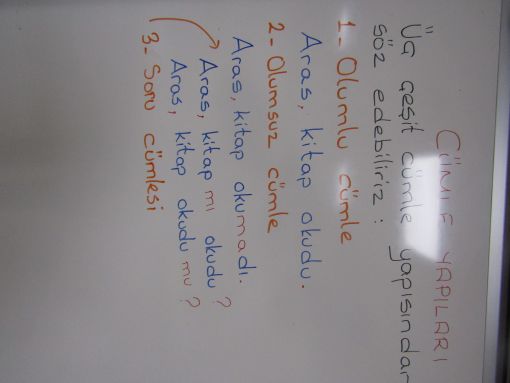 CÜMLE YAPILARI
Üç çeşit cümle yapısından
söz edebiliriz :
1- Olumlu cümle
Aras, kitap okudu.
2- Olumsuz cümle
Aras, kitap okumadı.
Aras, kitap mı okudu ?
Aras, kitap okudu mu ?
3- Soru cümlesi